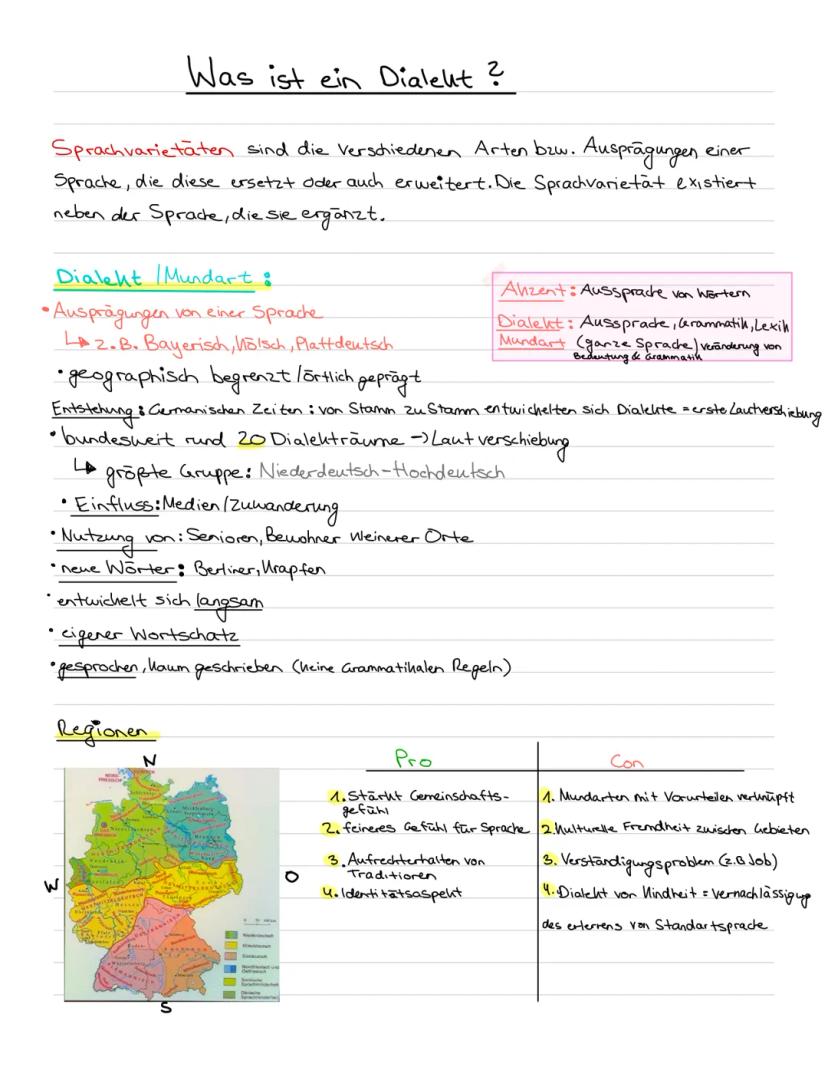 Was ist ein Dialekt?
Sprachvarietäten sind die verschiedenen Arten bzw. Ausprägungen einer
Sprache, die diese ersetzt oder auch erweitert. Die Sprachvarietät existiert
neben der Sprache, die sie ergänzt.
Dialekt / Mundart:
• Ausprägungen von einer Sprache
↳ z.B. Bayerisch, Kölsch, Plattdeutsch
Akzent: Aussprache von Wörtern
Dialekt: Aussprache, Grammatik, Lexik
Mundart (ganze Sprache) Veränderung von
Bedeutung & Grammatik
• geographisch begrenzt / örtlich geprägt
Entstehung: Germanischen Zeiten: von Stamm zu Stamm entwickelten sich Dialekte = erste Lautverschiebung
• bundesweit rund 20 Dialekträume → Lautverschiebung
↳ größte Gruppe: Niederdeutsch-Hochdeutsch
• Einfluss: Medien / Zuwanderung
• Nutzung von: Senioren, Bewohner kleinerer Orte
• neue Wörter: Berliner, Krapfen
• entwickelt sich langsam
• eigener Wortschatz
• gesprochen, kaum geschrieben (keine Grammatikalen Regeln)
Regionen
N
W
O
S
Pro
1. Stärkt Gemeinschafts-
gefühl
2. feineres Gefühl für Sprache
3. Aufrechterhalten von
Traditionen
4. Identitätsaspekt
Con
1. Mundarten mit Vorurteilen verknüpft
2. Kulturelle Fremdheit zwischen Gebieten
3. Verständigungsproblem (z.B Job)
4. Dialekt von Kindheit = Vernachlässigung
des erlernens von Standartsprache